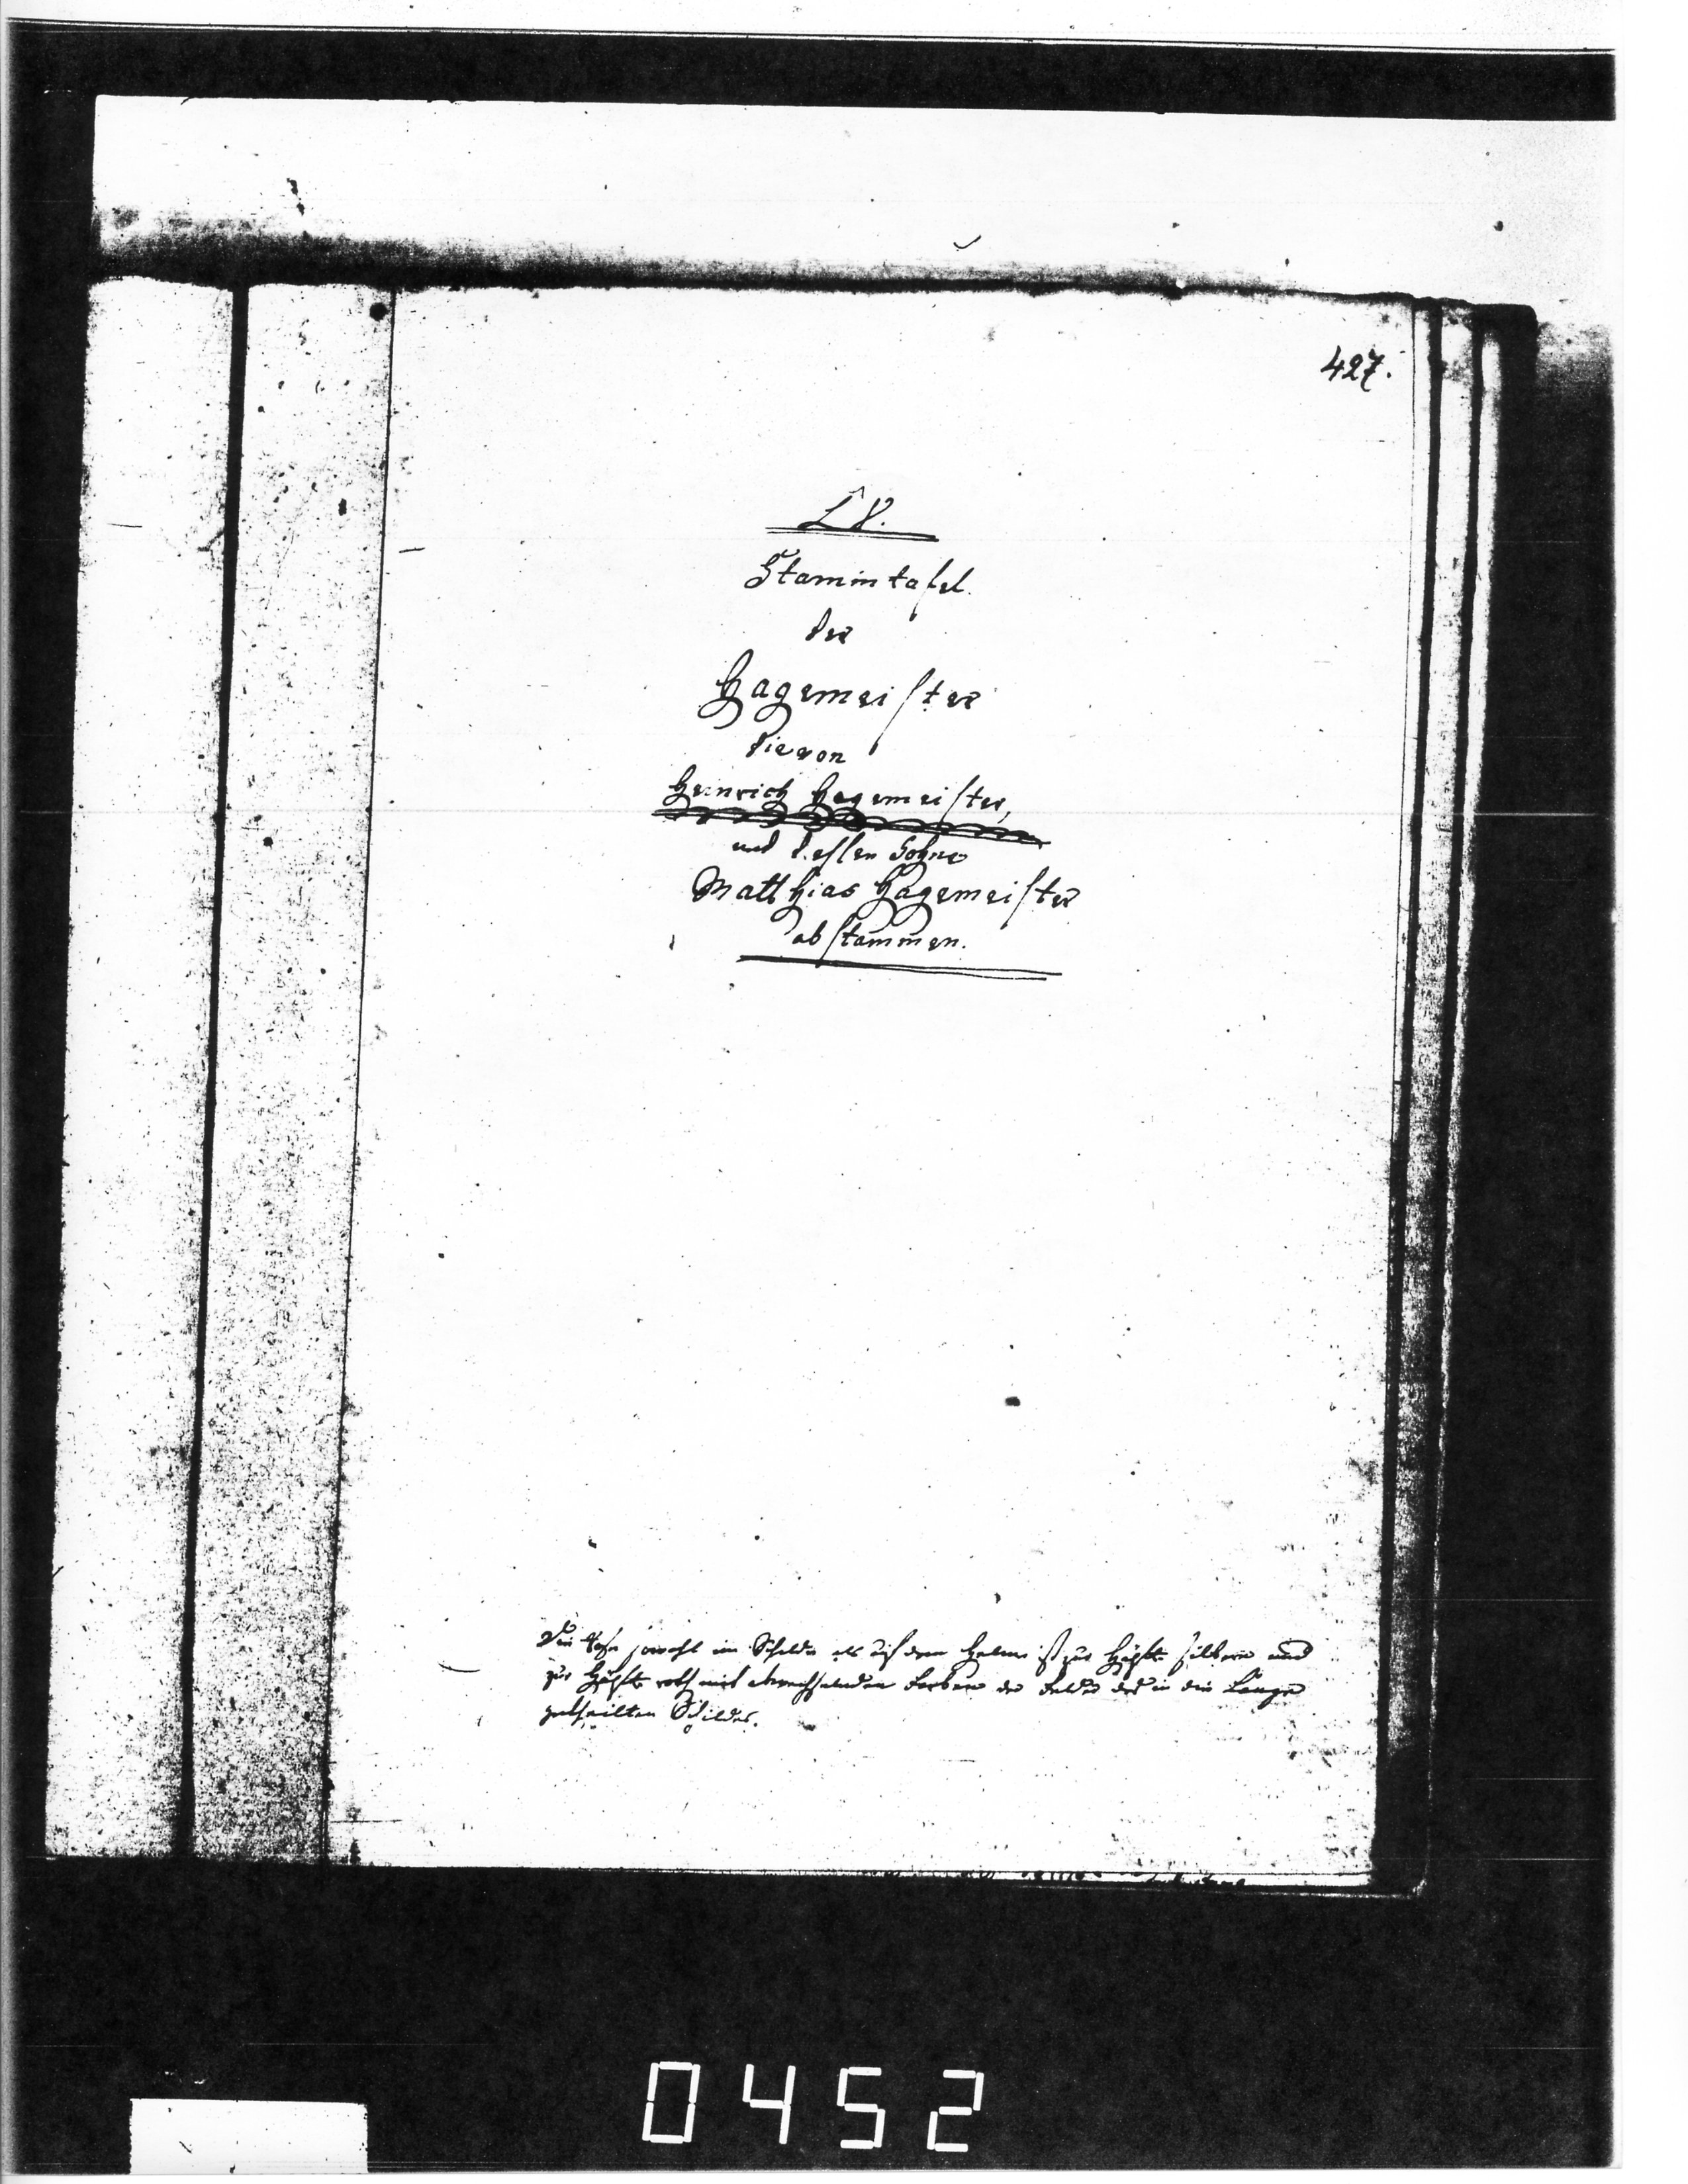 427.
LV.
Stammtafel
der
Hagemeister
die von
Heinrich Hagemeister,
und dessen Sohne
Matthias Hagemeister
abstammen.
Die sowohl im Schilde als auf dem Helme ist zur Hälfte silbern und
zur Hälfte roth mit abwechselnden Farben der Felder des in die Länge
getheilten Schildes.
0452